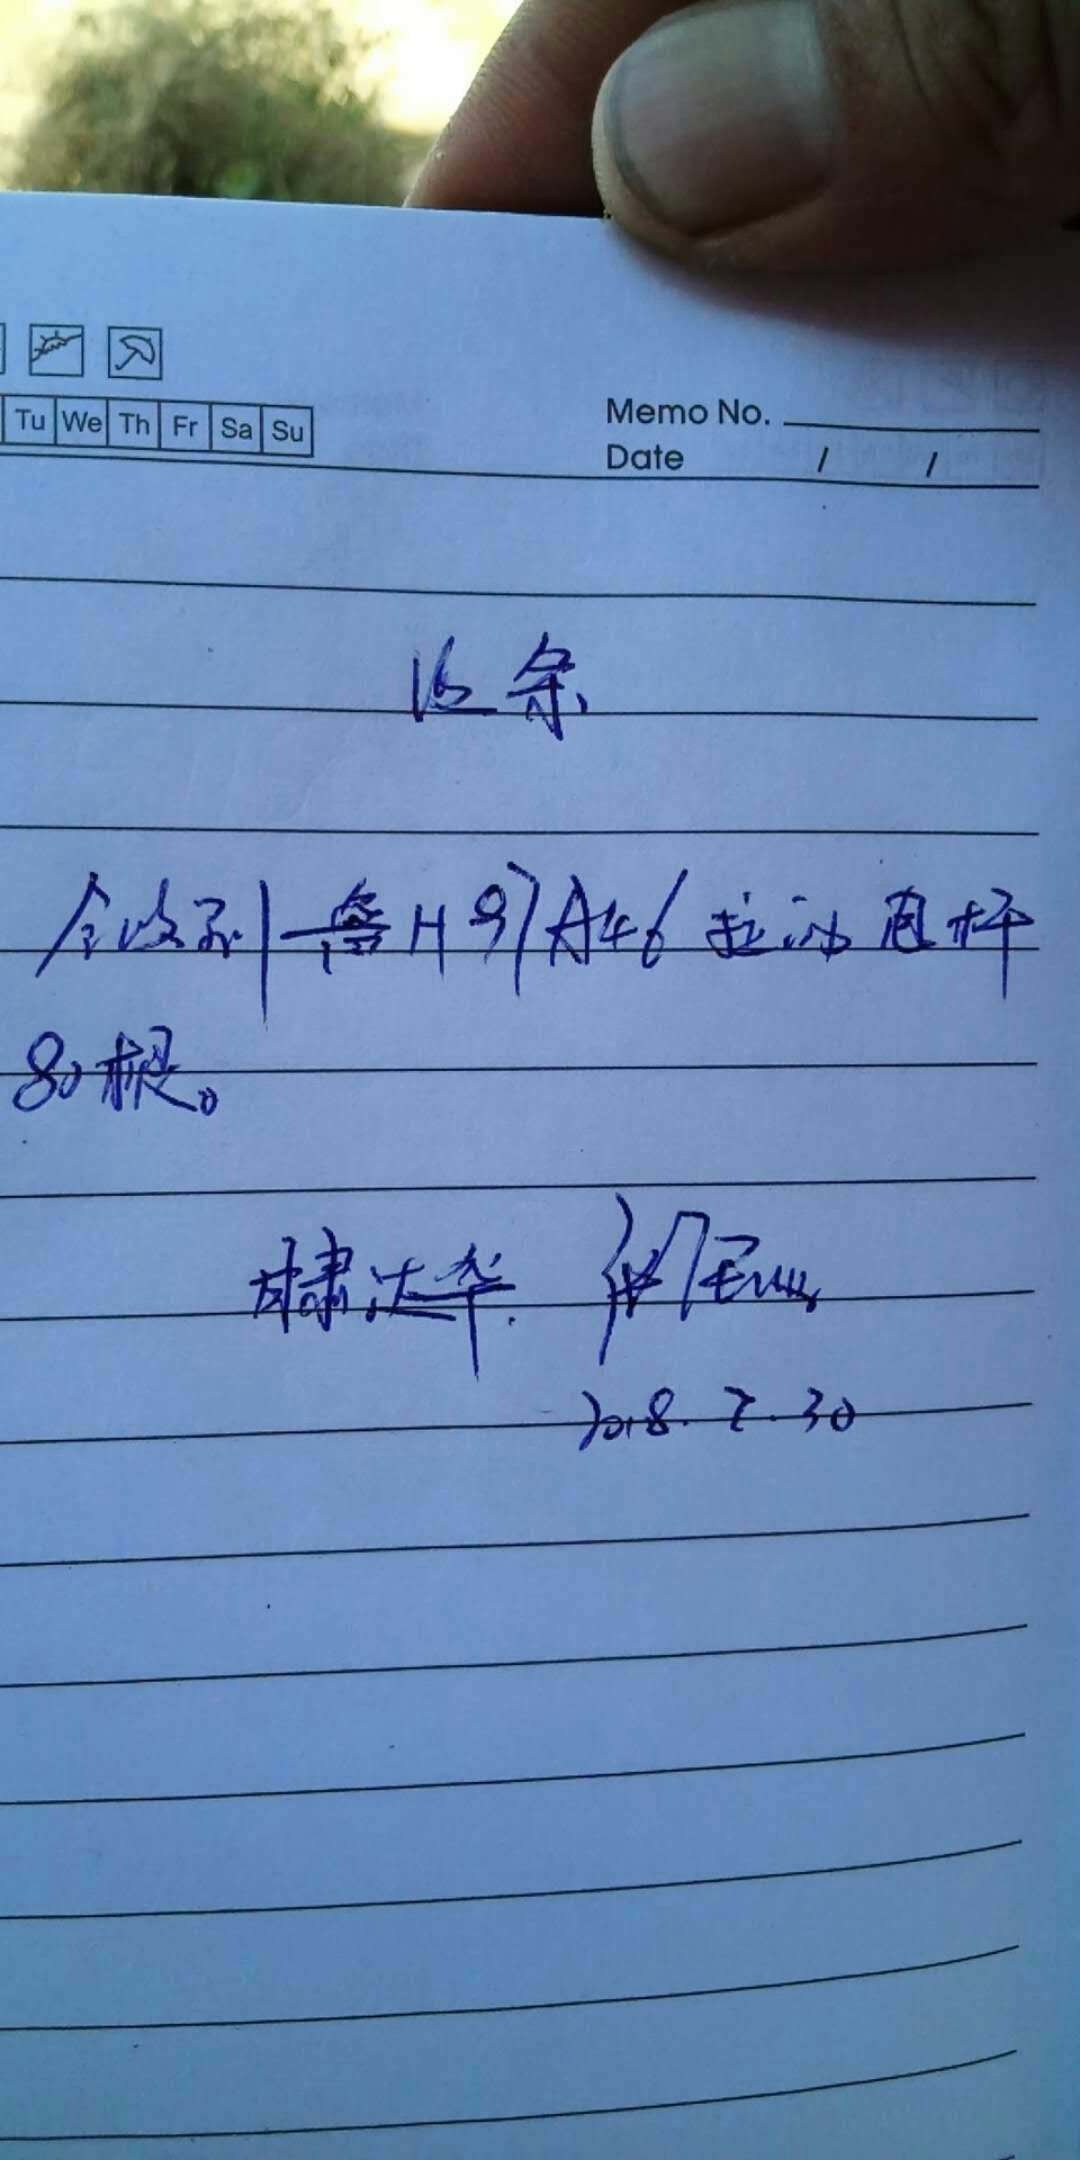 Tu We Th Fr Sa Su
Memo No.
Date / /
收条
今收到鲁H97A46拉油电杆
80根。
甘肃达华
2018.7.30